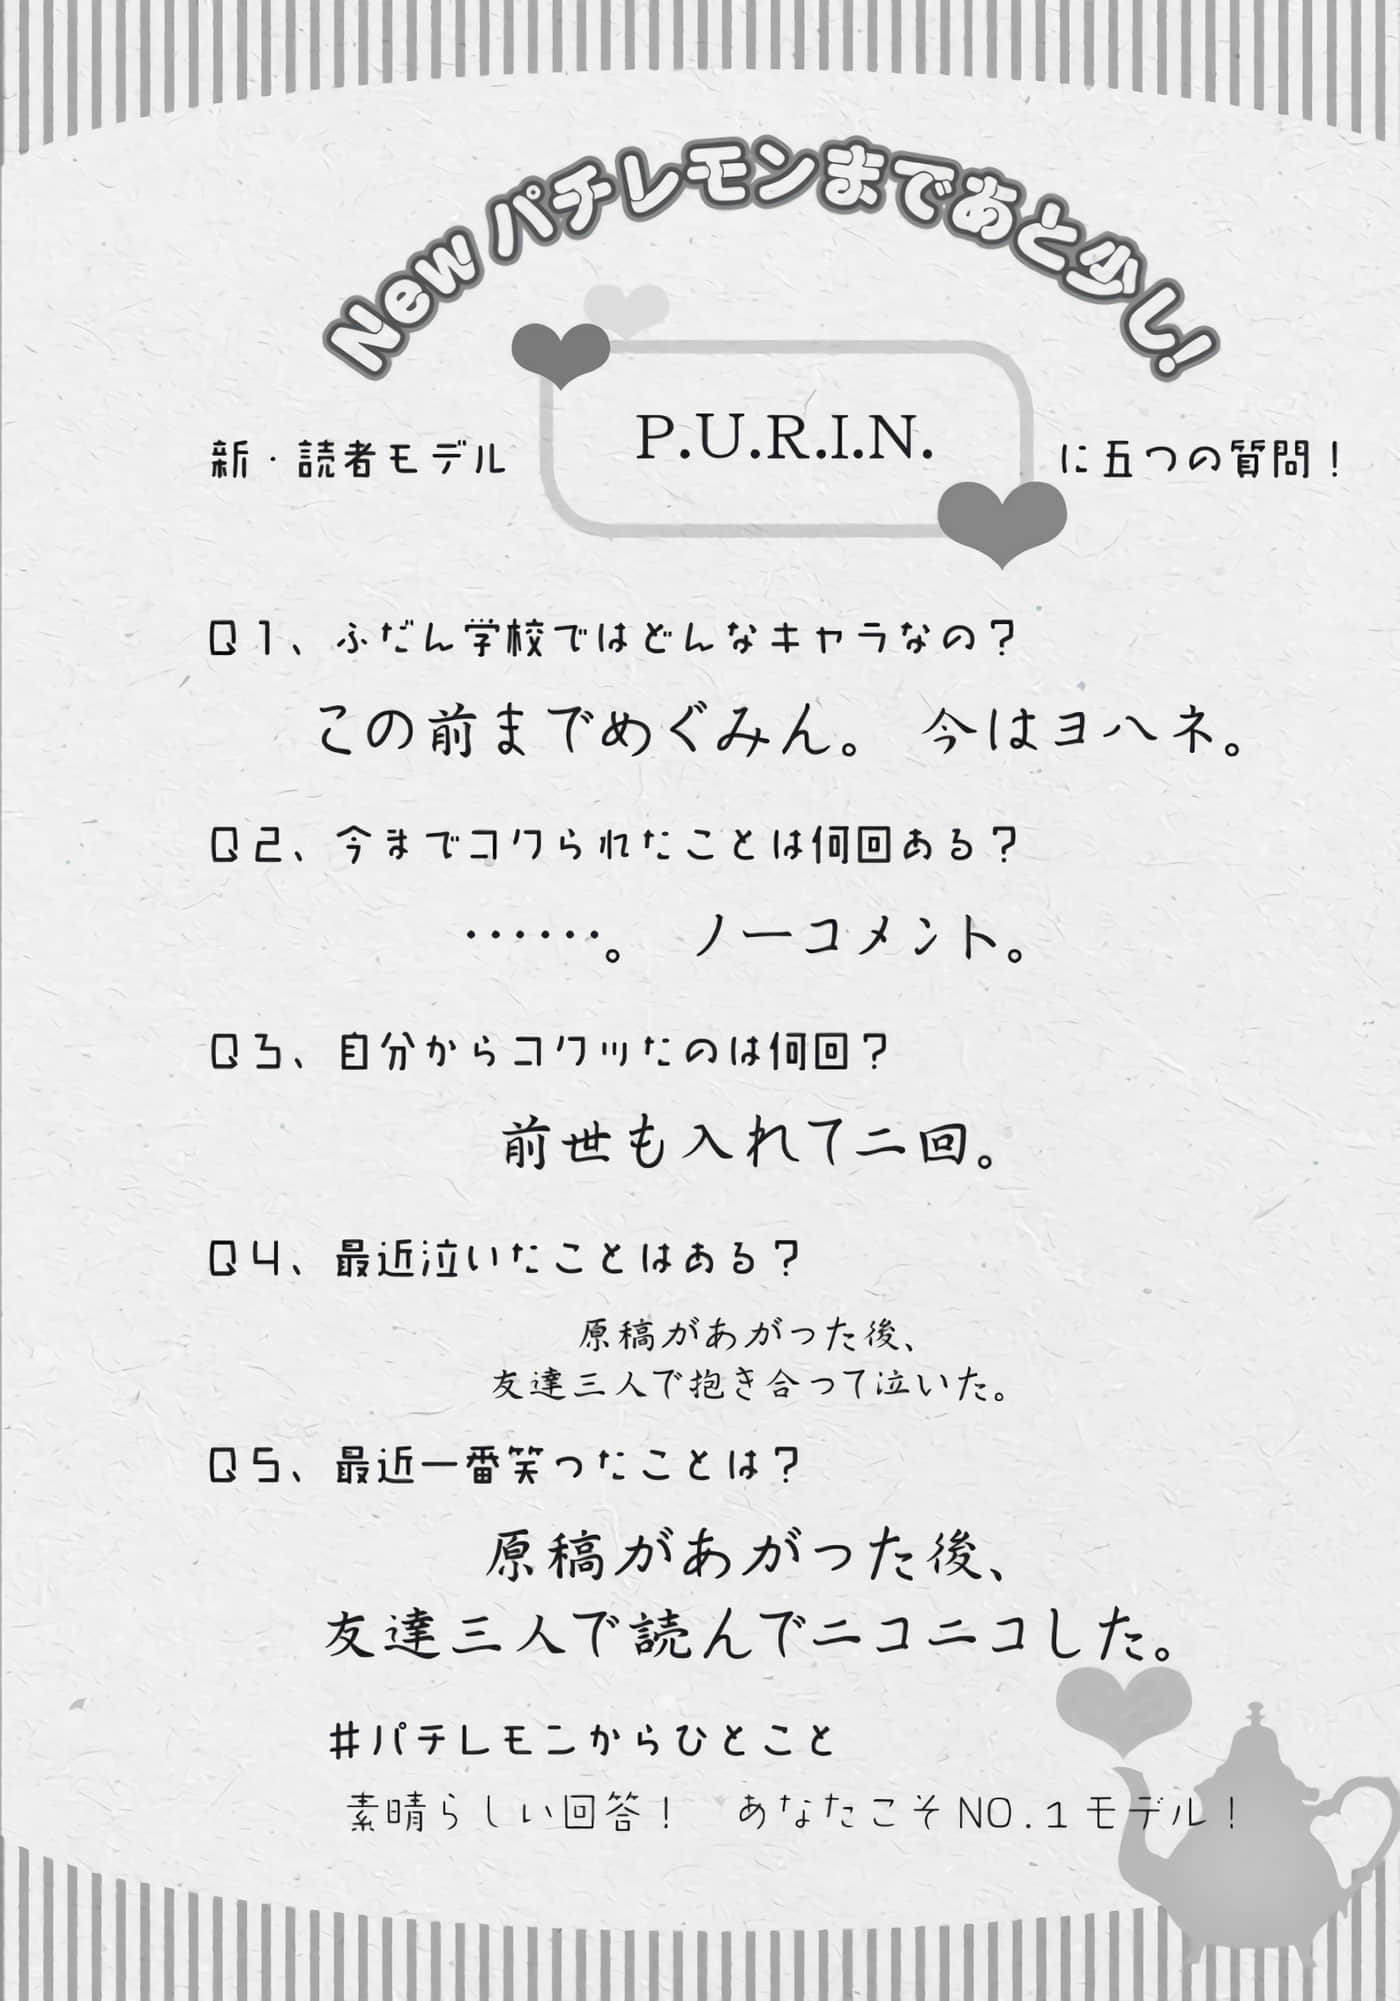 New パチレモンまであと少し!
新・読者モデル P.U.R.I.N. に五つの質問！
Q1、ふだん学校ではどんなキャラなの？
この前までめぐみん。　今はヨハネ。
Q2、今までコクられたことは何回ある？
……。　ノーコメント。
Q3、自分からコクッたのは何回？
前世も入れて二回。
Q4、最近泣いたことはある？
原稿があがった後、
友達三人で抱き合って泣いた。
Q5、最近一番笑ったことは？
原稿があがった後、
友達三人で読んでニコニコした。
#パチレモンからひとこと
素晴らしい回答！　あなたこそNO.1モデル！